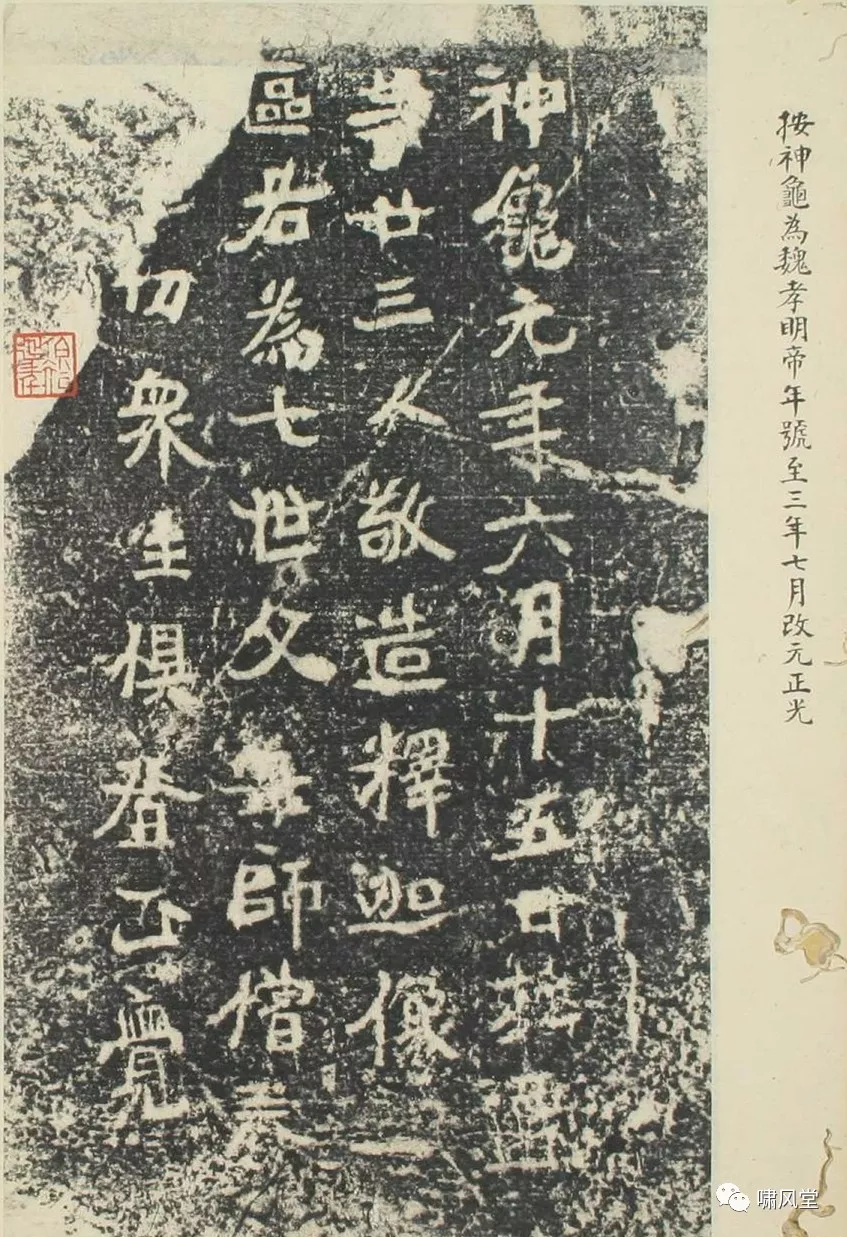 按神龜為魏孝明帝年號至三年七月改元正光
神龜元年六月十五日杜
等廿三人敬造釋迦像一
區若為七世父母師僧
切衆生俱登正覺
啸风堂